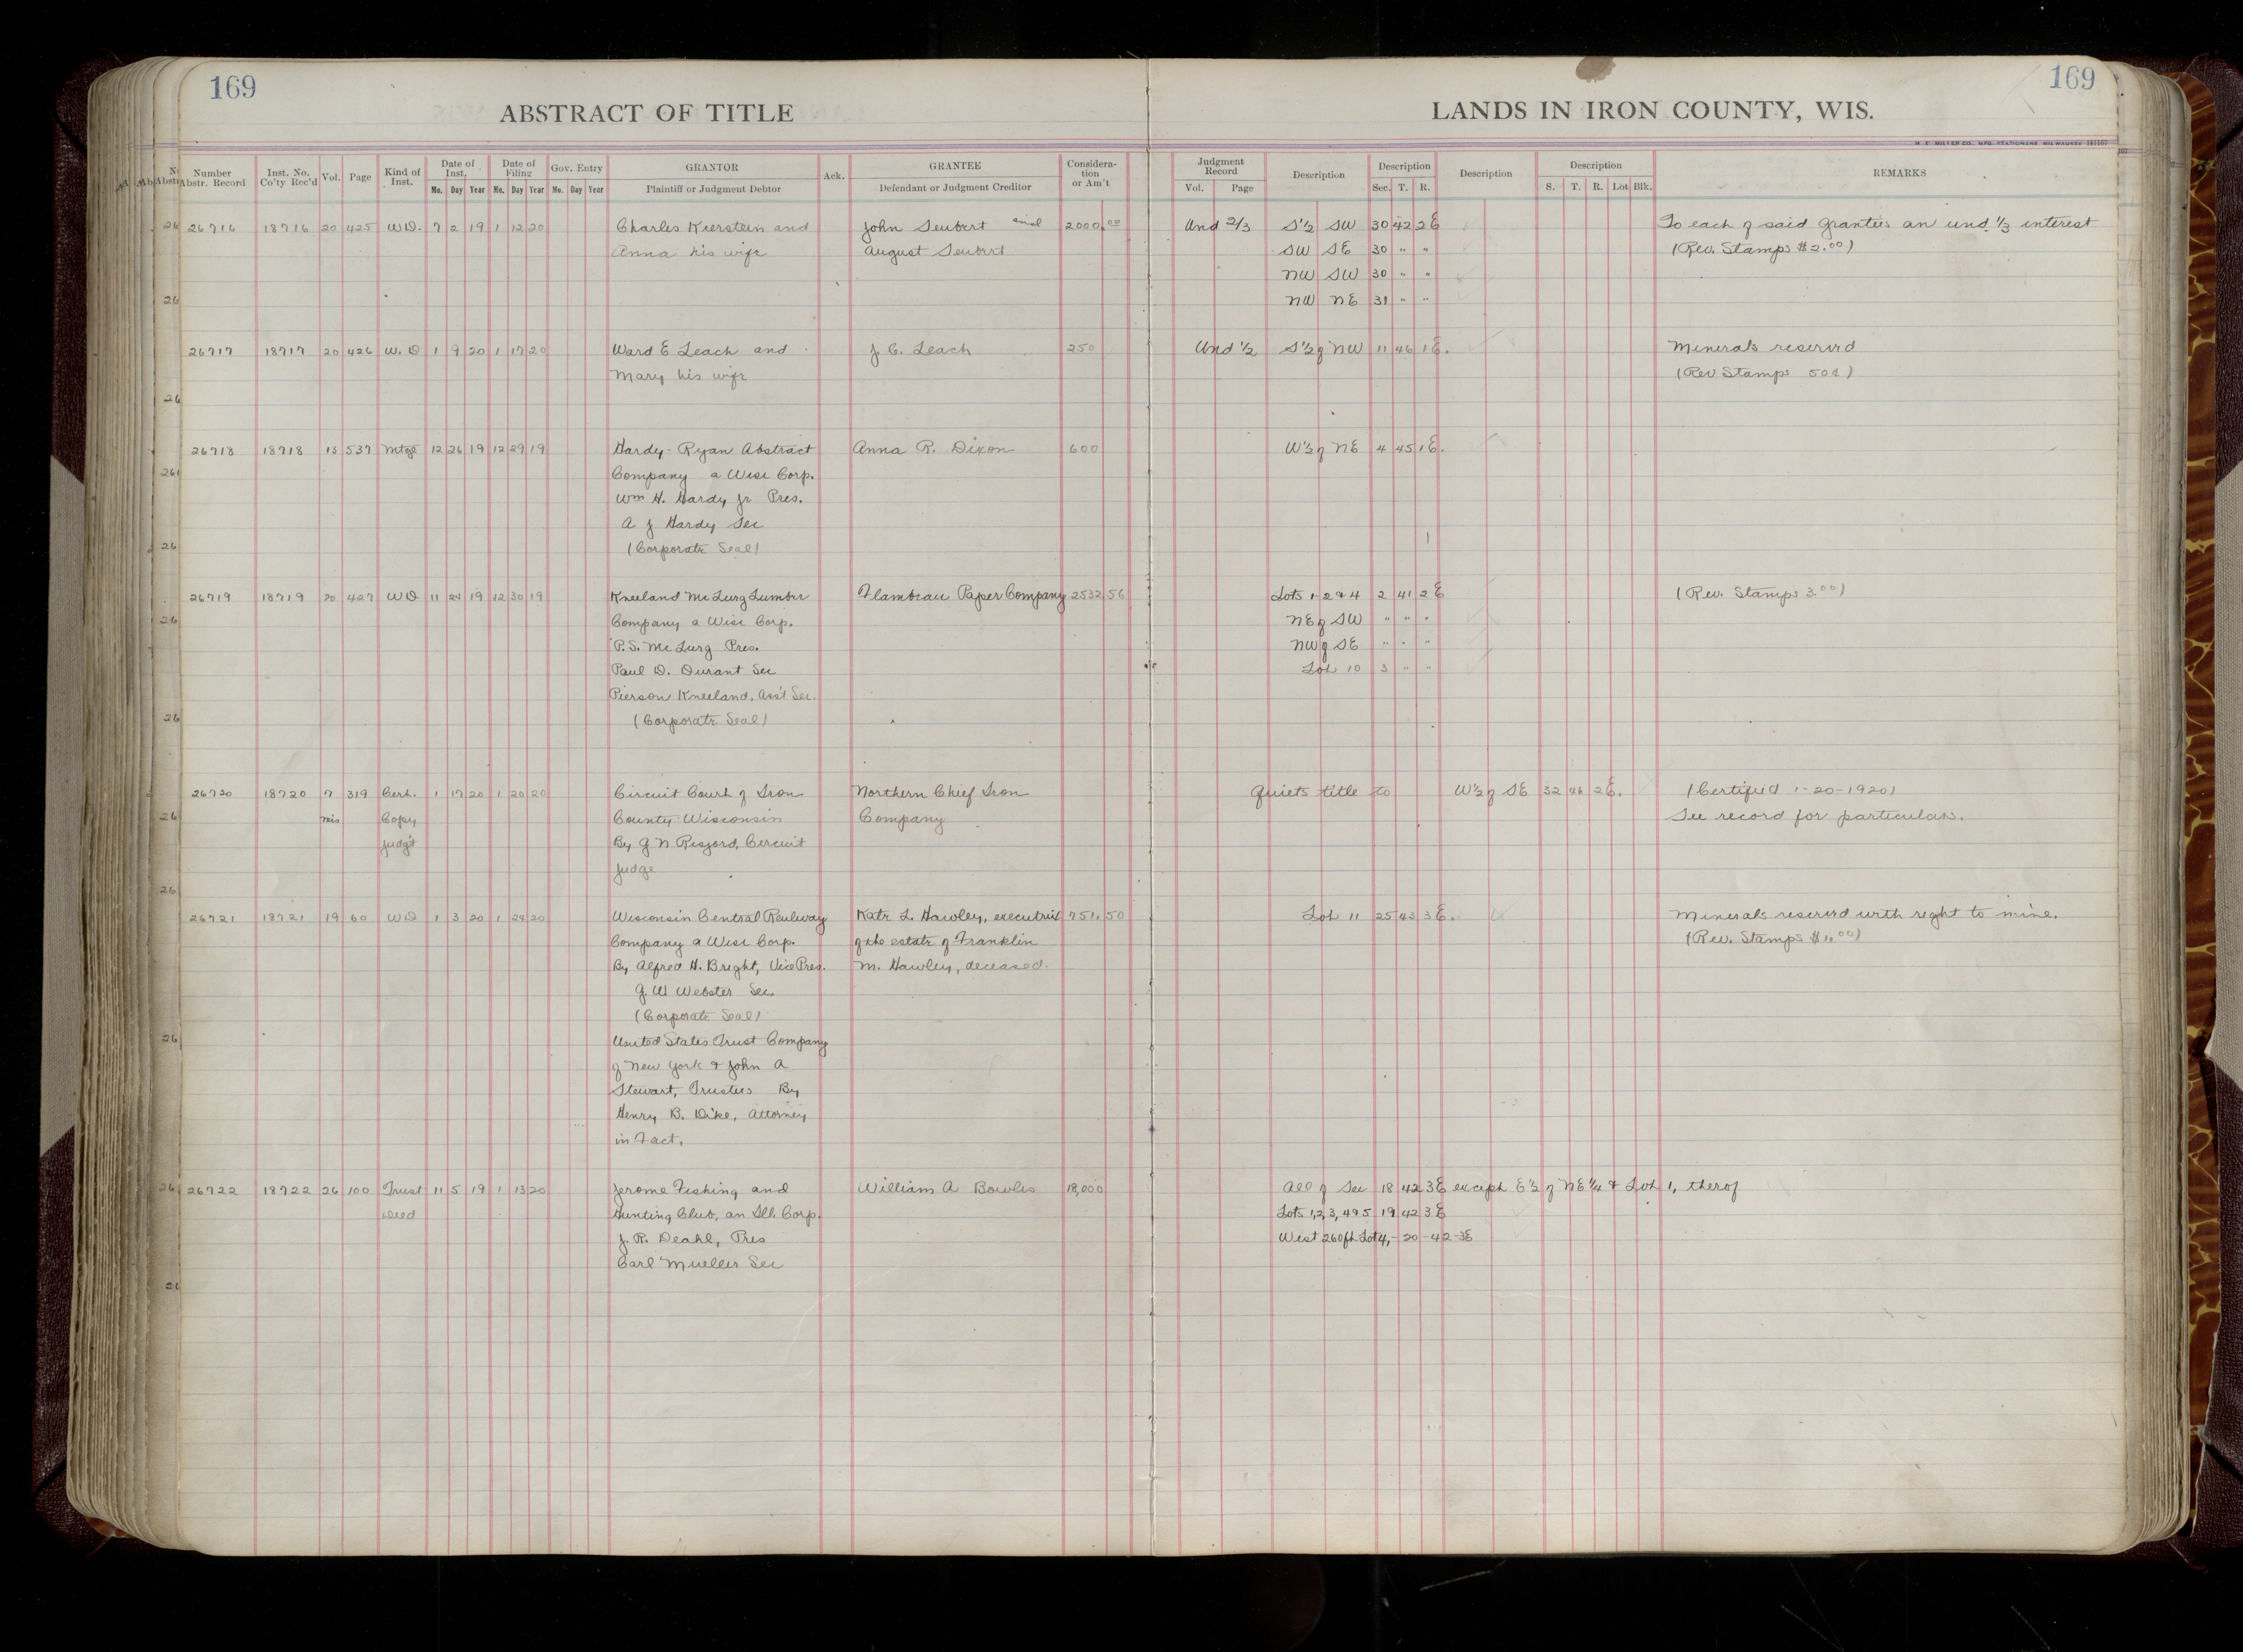 169
169
ABSTRACT OF TITLE
LANDS IN IRON COUNTY, WIS.
M. F. MILLER CO., MFG. STATIONERS, MILWAUKEE
Number Abstr. Record Inst. No. Co'ty Rec'd Vol. Page Kind of Inst. Date of Inst. Date of Filing Gov. Entry GRANTOR Ack. GRANTEE Considera-tion or Am't Judgment Record Description Description Description Description REMARKS
Mo. Day Year Mo. Day Year Mo. Day Year Plaintiff or Judgment Debtor Defendant or Judgment Creditor Vol. Page Sec. T. R. S. T. R. Lot Blk.
26716 18716 20 425 WD. 7 2 19 1 12 20 Charles Kierstein and John Seubert and 2000.00 Und 2/3 S½ SW 30 42 2E To each of said grantees an und. 1/3 interest
Anna his wife August Seubert SW SE 30 " " (Rev. Stamps $2.00)
NW SW 30 " "
NW NE 31 " "
26717 18717 20 426 W. D 1 9 20 1 17 20 Ward E Leach and J. C. Leach 250 Und ½ S½ of NW 11 46 1E. Minerals reserved
Mary his wife (Rev Stamps 50¢)
26718 18718 13 537 Mtge 12 26 19 12 29 19 Hardy-Ryan Abstract Anna R. Dixon 600 W½ of NE 4 45 1E.
Company a Wisc Corp.
Wm H. Hardy Jr Pres.
A J Hardy Sec
(Corporate Seal)
26719 18719 20 427 WD 11 24 19 12 30 19 Kneeland McLurg Lumber Flambeau Paper Company 2532 56 Lots 1-2 & 4 2 41 2E (Rev. Stamps 3.00)
Company a Wisc Corp. NE of SW " " "
P.S. McLurg Pres. NW of SE " " "
Paul D. Durant Sec Lot 10 3 " "
Pierson Kneeland, Ass't Sec.
(Corporate Seal)
26720 18720 7 319 Cert. 1 17 20 1 20 20 Circuit Court of Iron Northern Chief Iron Quiets title to W½ of SE 32 46 2E. (Certified 1-20-1920)
mis Copy County Wisconsin Company See record for particulars.
Judg't By G N Risjord, Circuit
Judge
26721 18721 19 60 WD 1 3 20 1 24 20 Wisconsin Central Railway Kate L. Hawley, executrix 751.50 Lot 11 25 43 3E. Minerals reserved with right to mine.
Company a Wisc Corp. of the estate of Franklin (Rev. Stamps $1.00)
By Alfred H. Bright, Vice Pres. M. Hawley, deceased.
G. W Webster Sec.
(Corporate Seal)
United States Trust Company
of New York & John A
Stewart, Trustees By
Henry B. Dike, Attorney
in Fact.
26722 18722 26 100 Trust 11 5 19 1 13 20 Jerome Fishing and William A Bowles 18,000 All of Sec 18 42 3E except E½ of NE¼ & Lot 1, therof
Deed Hunting Club, an Ill. Corp. Lots 1,2,3,4&5 19 42 3E
J. R. Deahl, Pres West 260ft Lot 4,- 20-42-3E
Carl Mueller Sec